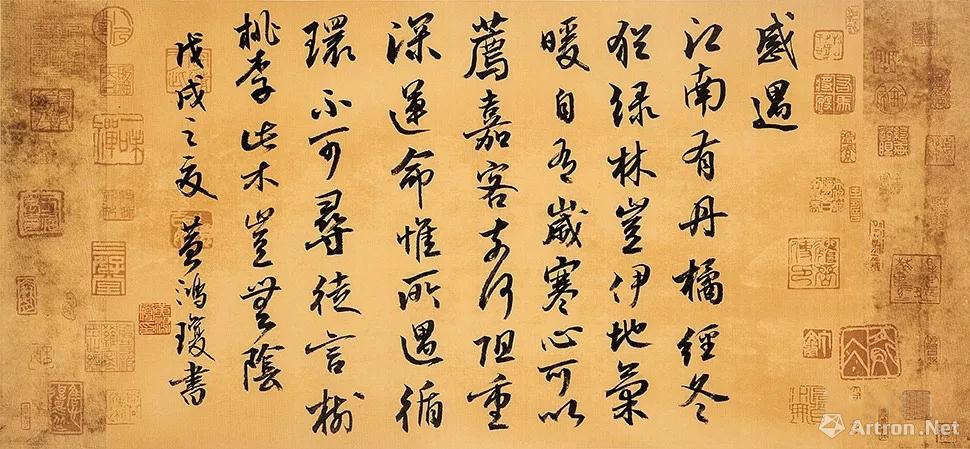 感遇
江南有丹橘經冬
猶绿林豈伊地氣
暖自有歲寒心可以
薦嘉客奈何阻重
深運命惟所遇循
環不可尋徒言樹
桃李此木豈無陰
戊戌之夏 黃鴻瓊書
Artron.Net